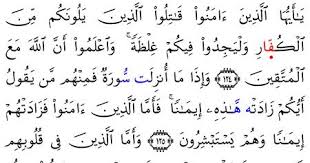 يَٰٓأَيُّهَا ٱلَّذِينَ ءَامَنُوا۟ قَٰتِلُوا۟ ٱلَّذِينَ يَلُونَكُم مِّنَ
ٱلْكُفَّارِ وَلْيَجِدُوا۟ فِيكُمْ غِلْظَةً ۚ وَٱعْلَمُوٓا۟ أَنَّ ٱللَّهَ مَعَ
ٱلْمُتَّقِينَ ﴿١٢٣﴾ وَإِذَا مَآ أُنزِلَتْ سُورَةٌ فَمِنْهُم مَّن يَقُولُ
أَيُّكُمْ زَادَتْهُ هَٰذِهِۦٓ إِيمَٰنًا ۚ فَأَمَّا ٱلَّذِينَ ءَامَنُوا۟ فَزَادَتْهُمْ
إِيمَٰنًا وَهُمْ يَسْتَبْشِرُونَ ﴿١٢٤﴾ وَأَمَّا ٱلَّذِينَ فِى قُلُوبِهِم